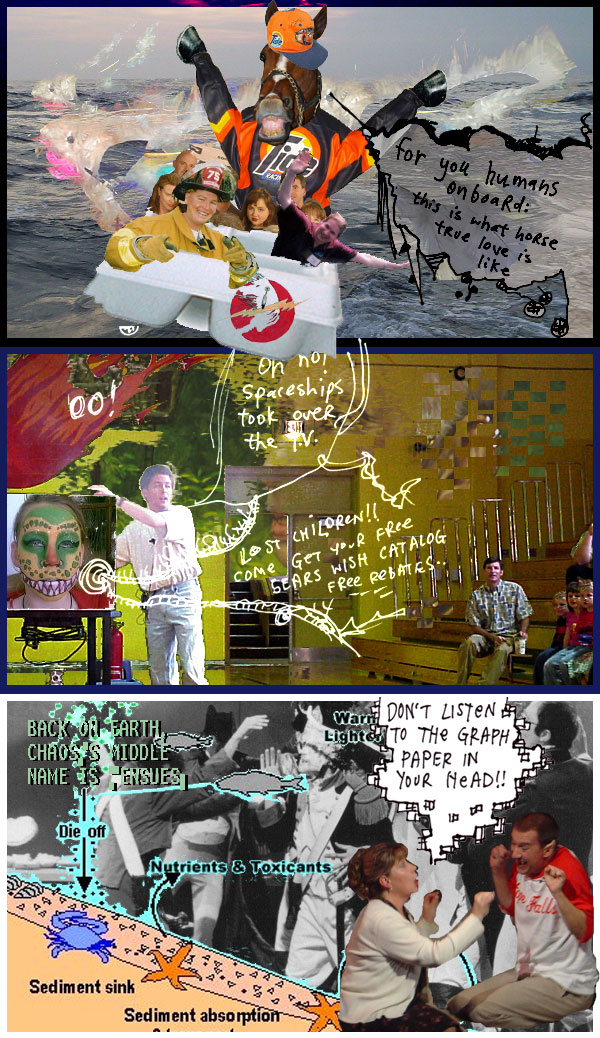 Tide
Tide
RACING
75
for you humans
onboard:
this is what horse
true love is
like
OO!
Oh no!
Spaceships
took over
the T.V.
LOST CHILDREN!!
COME GET YOUR FREE
SEARS WISH CATALOG
FREE REBATES..
BACK ON EARTH,
CHAOS'S MIDDLE
NAME IS -ENSUES
Warm
Lighted
DON'T LISTEN
TO THE GRAPH
PAPER IN
YOUR HEAD!!
Die off
Nutrients & Toxicants
Falls
Sediment sink
Sediment absorption